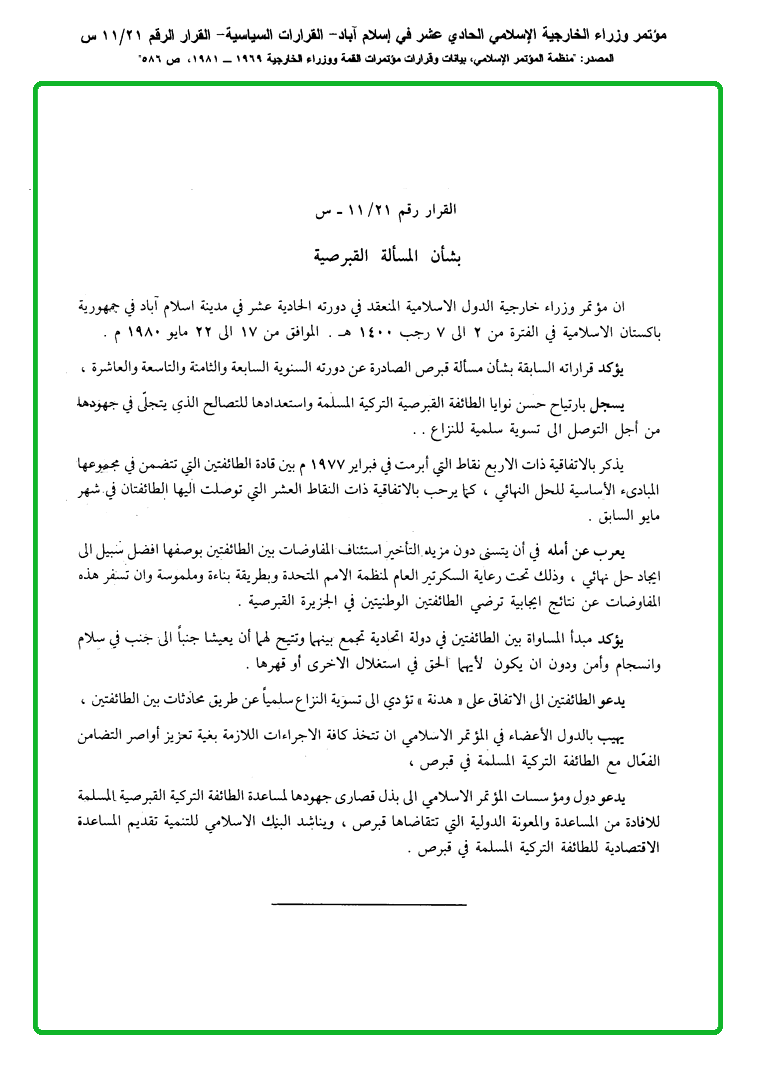 مؤتمر وزراء الخارجية الإسلامي الحادي عشر في إسلام آباد- القرارات السياسية- القرار الرقم ١١/٢١ س
المصدر: "منظمة المؤتمر الإسلامي، بيانات وقرارات مؤتمرات القمة ووزراء الخارجية ١٩٦٩ ــ ١٩٨١، ص ٥٨٦"
القرار رقم ١١/٢١ - س
بشأن المسألة القبرصية
ان مؤتمر وزراء خارجية الدول الاسلامية المنعقد في دورته الحادية عشر في مدينة اسلام آباد في جمهورية
باكستان الاسلامية في الفترة من ٢ الى ٧ رجب ١٤٠٠ هـ . الموافق من ١٧ الى ٢٢ مايو ١٩٨٠ م .
يؤكد قراراته السابقة بشأن مسألة قبرص الصادرة عن دورته السنوية السابعة والثامنة والتاسعة والعاشرة ،
يسجل بارتياح حسن نوايا الطائفة القبرصية التركية المسلمة واستعدادها للتصالح الذي يتجلّى في جهودها
من أجل التوصل الى تسوية سلمية للنزاع . .
يذكر بالاتفاقية ذات الاربع نقاط التي أبرمت في فبراير ١٩٧٧ م بين قادة الطائفتين التي تتضمن في مجموعها
المبادىء الأساسية للحل النهائي ، كما يرحب بالاتفاقية ذات النقاط العشر التي توصلت اليها الطائفتان في شهر
مايو السابق .
يعرب عن أمله في أن يتسنى دون مزيد التأخير استئناف المفاوضات بين الطائفتين بوصفها افضل سبيل الى
ايجاد حل نهائي ، وذلك تحت رعاية السكرتير العام لمنظمة الامم المتحدة وبطريقة بناءة وملموسة وان تسفر هذه
المفاوضات عن نتائج ايجابية ترضي الطائفتين الوطنيتين في الجزيرة القبرصية .
يؤكد مبدأ المساواة بين الطائفتين في دولة اتحادية تجمع بينهما وتتيح لهما أن يعيشا جنباً الى جنب في سلام
وانسجام وأمن ودون ان يكون لأيهما الحق في استغلال الاخرى أو قهرها .
يدعو الطائفتين الى الاتفاق على « هدنة » تؤدي الى تسوية النزاع سلمياً عن طريق محادثات بين الطائفتين ،
يهيب بالدول الأعضاء في المؤتمر الاسلامي ان تتخذ كافة الاجراءات اللازمة بغية تعزيز أواصر التضامن
الفعّال مع الطائفة التركية المسلمة في قبرص ،
يدعو دول ومؤسسات المؤتمر الاسلامي الى بذل قصارى جهودها لمساعدة الطائفة التركية القبرصية المسلمة
للافادة من المساعدة والمعونة الدولية التي تتقاضاها قبرص ، ويناشد البنك الاسلامي للتنمية تقديم المساعدة
الاقتصادية للطائفة التركية المسلمة في قبرص .